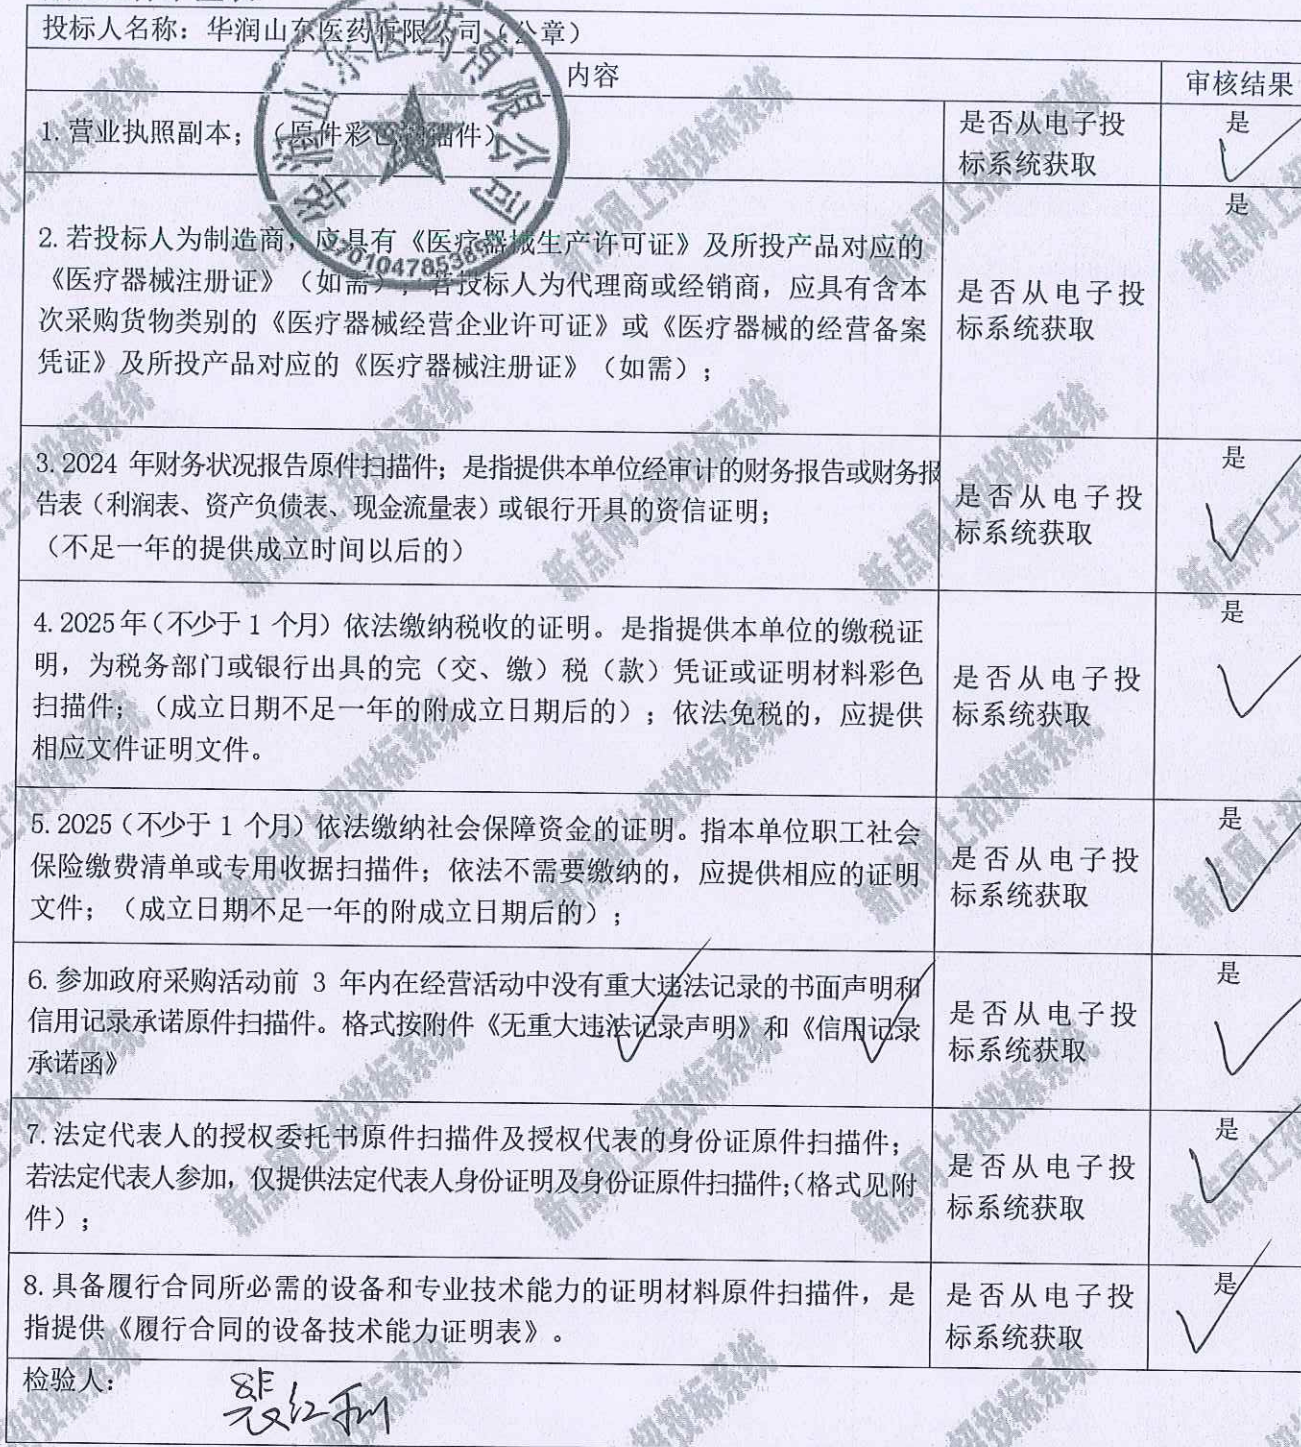 投标人名称：华润山东医药有限公司（公章）
内容
审核结果
1.营业执照副本；（原件彩色扫描件）
是否从电子投
标系统获取
是
2.若投标人为制造商，应具有《医疗器械生产许可证》及所投产品对应的
《医疗器械注册证》（如需），若投标人为代理商或经销商，应具有含本
次采购货物类别的《医疗器械经营企业许可证》或《医疗器械的经营备案
凭证》及所投产品对应的《医疗器械注册证》（如需）；
是否从电子投
标系统获取
是
3.2024 年财务状况报告原件扫描件；是指提供本单位经审计的财务报告或财务报
告表（利润表、资产负债表、现金流量表）或银行开具的资信证明；
（不足一年的提供成立时间以后的）
是否从电子投
标系统获取
是
4.2025年（不少于 1 个月）依法缴纳税收的证明。是指提供本单位的缴税证
明，为税务部门或银行出具的完（交、缴）税（款）凭证或证明材料彩色
扫描件；（成立日期不足一年的附成立日期后的）；依法免税的，应提供
相应文件证明文件。
是否从电子投
标系统获取
是
5.2025（不少于 1 个月）依法缴纳社会保障资金的证明。指本单位职工社会
保险缴费清单或专用收据扫描件；依法不需要缴纳的，应提供相应的证明
文件；（成立日期不足一年的附成立日期后的）；
是否从电子投
标系统获取
是
6.参加政府采购活动前 3 年内在经营活动中没有重大违法记录的书面声明和
信用记录承诺原件扫描件。格式按附件《无重大违法记录声明》和《信用记录
承诺函》
是否从电子投
标系统获取
是
7.法定代表人的授权委托书原件扫描件及授权代表的身份证原件扫描件；
若法定代表人参加，仅提供法定代表人身份证明及身份证原件扫描件；（格式见附
件）；
是否从电子投
标系统获取
是
8.具备履行合同所必需的设备和专业技术能力的证明材料原件扫描件，是
指提供《履行合同的设备技术能力证明表》。
是否从电子投
标系统获取
是
检验人：
裴红利
华润山东医药有限公司
新点网上招投标系统